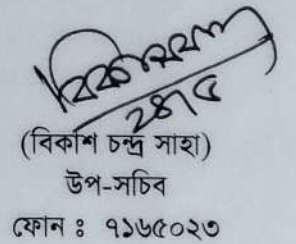 ২৪/৫
(বিকাশ চন্দ্র সাহা)
উপ-সচিব
ফোন ঃ ৭১৬৫০২৩